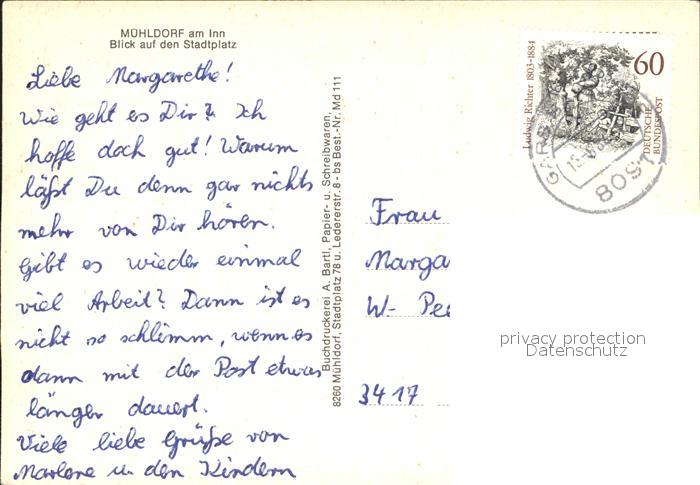 MÜHLDORF am Inn
Blick auf den Stadtplatz
Liebe Margarethe!
Wie geht es Dir? Ich
hoffe doch gut! Warum
läßt Du denn gar nichts
mehr von Dir hören.
Gibt es wieder einmal
viel Arbeit? Dann ist es
nicht so schlimm, wenn es
dann mit der Post etwas
länger dauert.
Viele liebe Grüße von
Marlene u. den Kindern
Buchdruckerei A. Bartl, Papier- u. Schreibwaren,
8260 Mühldorf, Stadtplatz 78 u. Ledererstr. 8 - bs Best.-Nr. Md 111
Ludwig Richter 1803-1884
60
DEUTSCHE
BUNDESPOST
GARS
8051
Frau
Marga
W- Pe
3417
privacy protection
Datenschutz